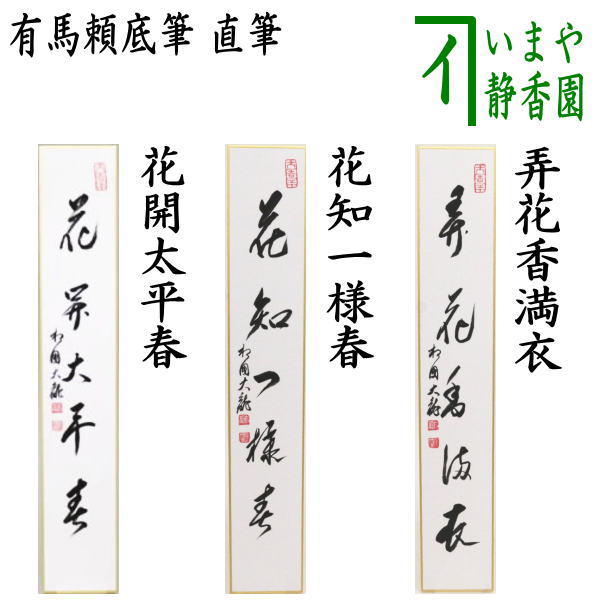 有馬頼底筆 直筆
イ
いまや
静香園
花開太平春
花知一様春
弄花香満衣
花開太平春
相国大龍
花知一様春
相国大龍
弄花香満衣
相国大龍